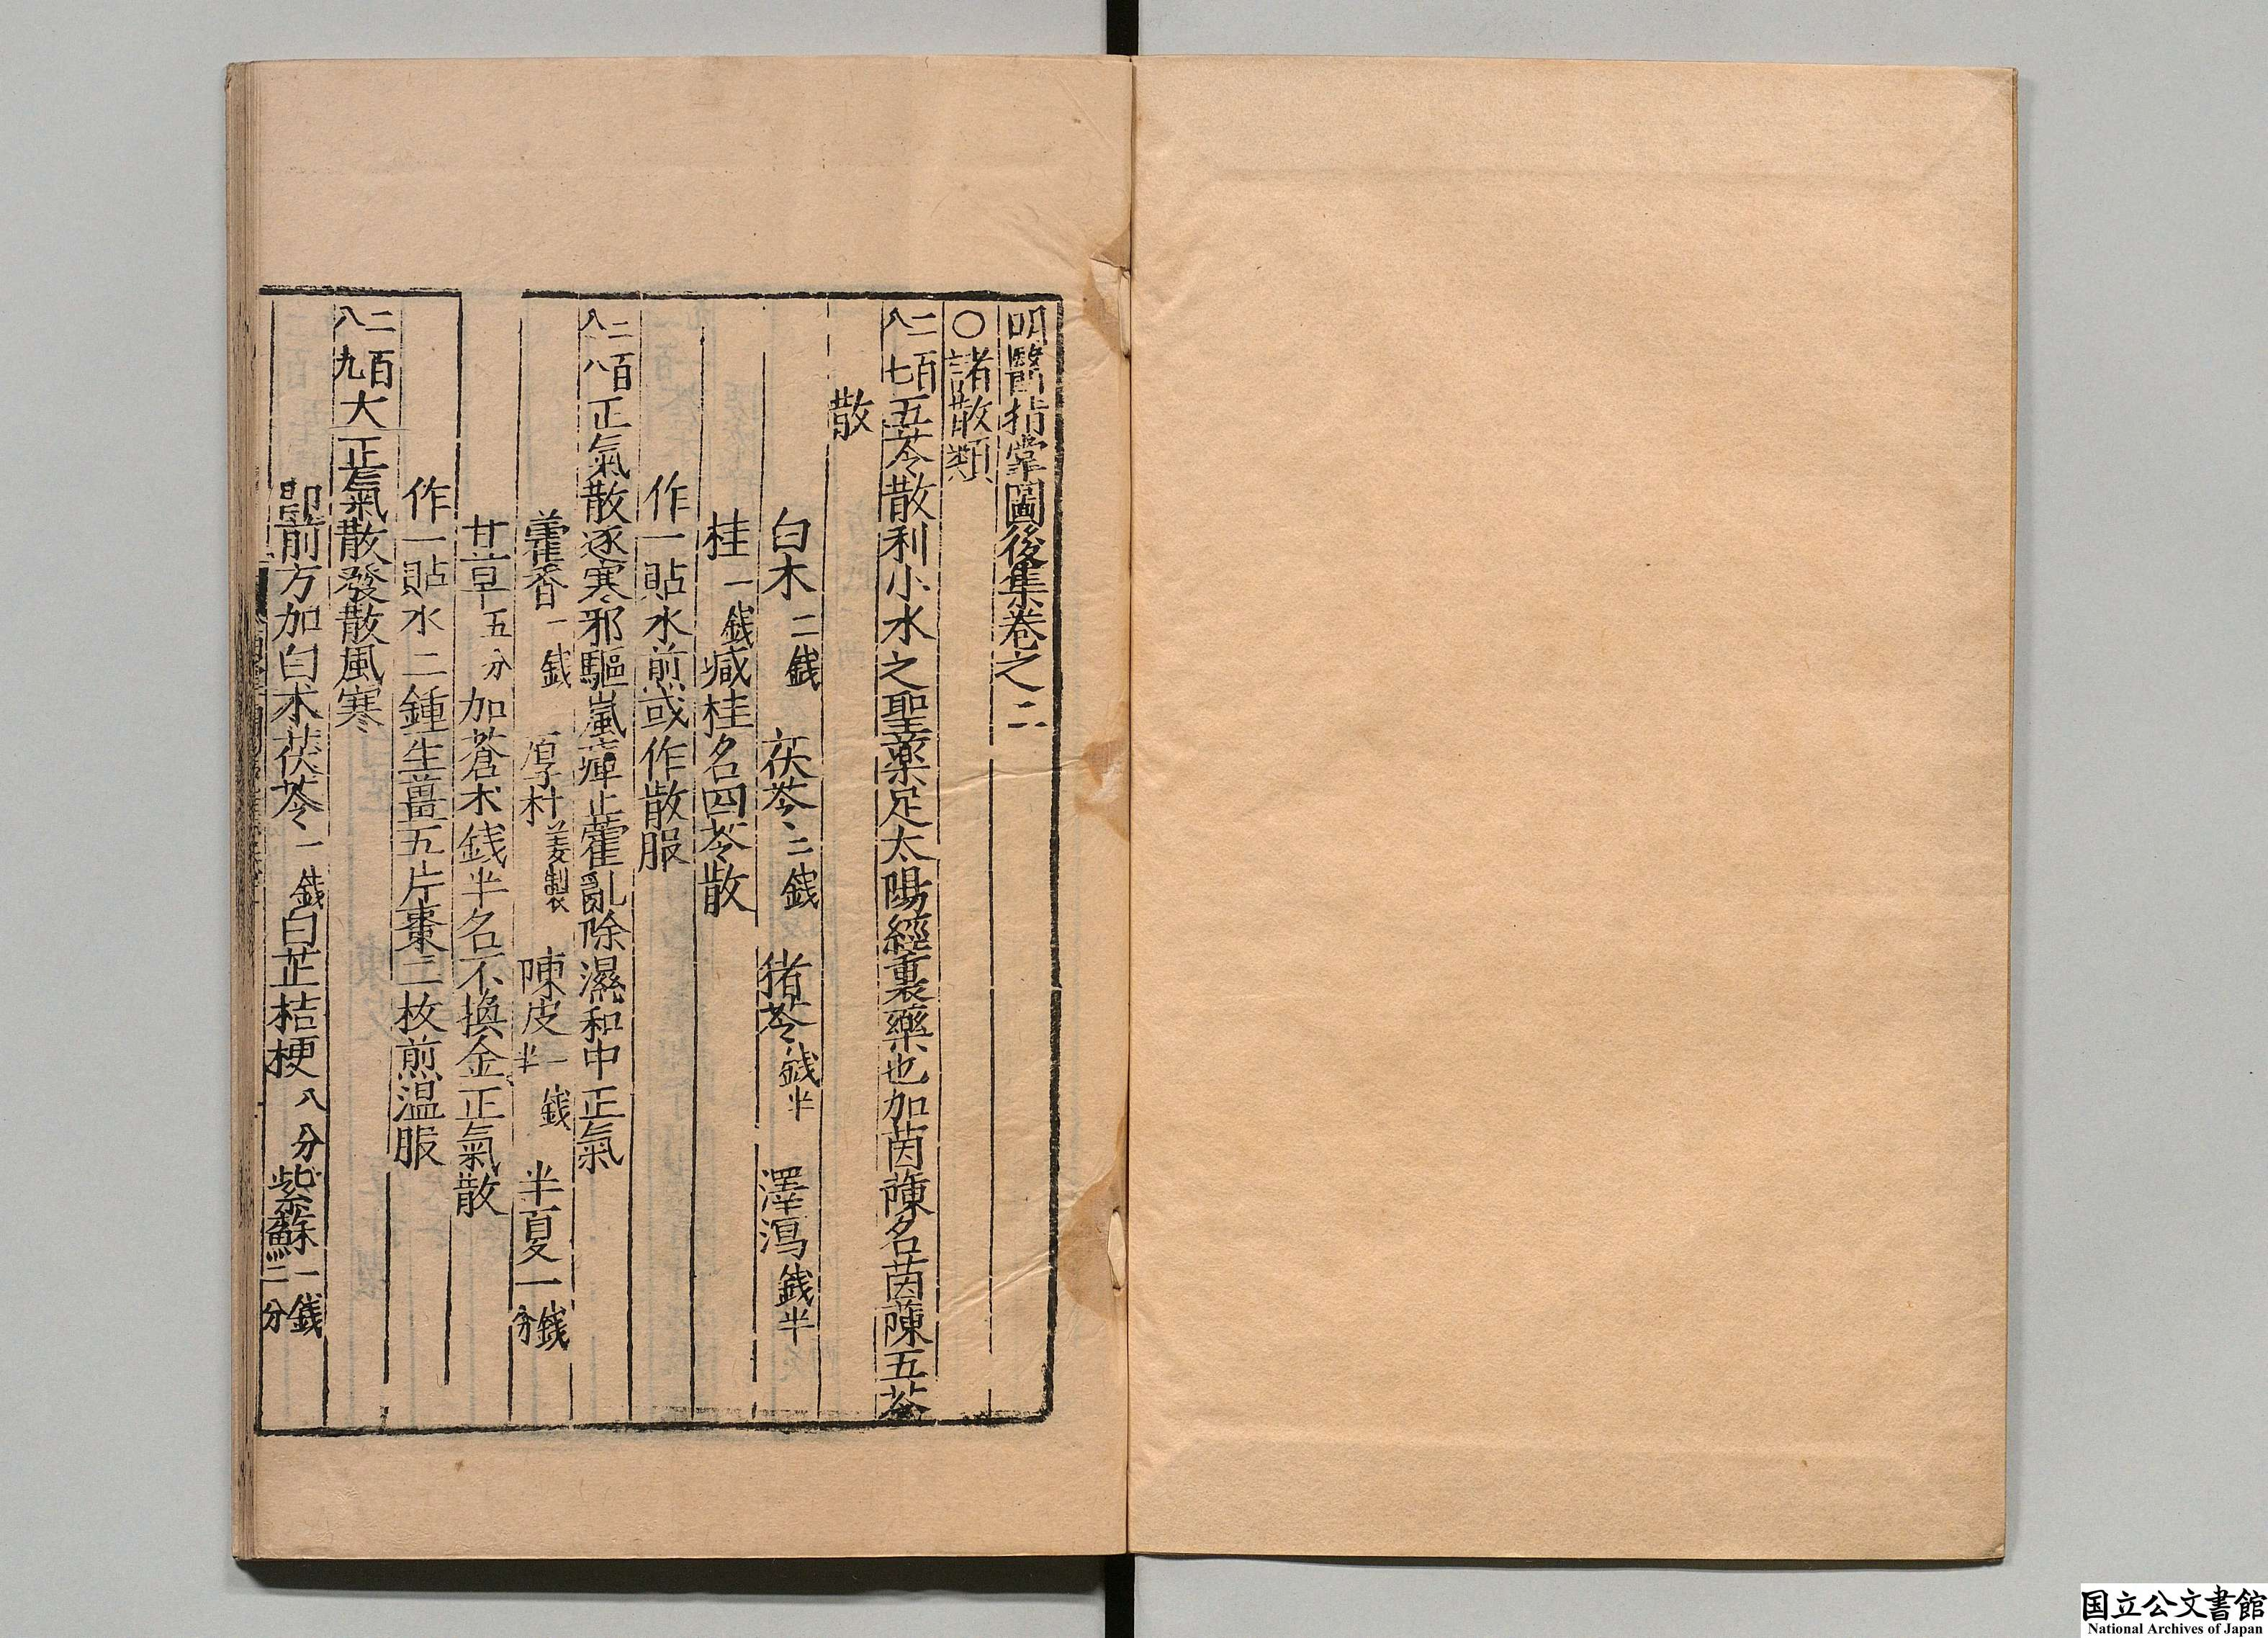 明醫指掌圖後集卷之二
○諸散類
二百八七五苓散利小水之聖藥足太陽經裏藥也加茵蔯名茵蔯五苓
散
白木二錢 茯苓二錢 猪苓錢半 澤瀉錢半
桂一錢 減桂名四苓散
作一貼水煎或作散服
二百八八正氣散逐寒邪驅嵐瘴止藿亂除濕和中正氣
藿香一錢 厚朴姜製 陳皮一錢半 半夏一錢分
甘草五分 加蒼朮錢半名不換金正氣散
作一貼水二鍾生薑五片棗二枚煎温服
二百八九大正氣散發散風寒
即前方加白朮茯苓一錢白芷桔梗八分紫蘇一錢二分
国立公文書館
National Archives of Japan